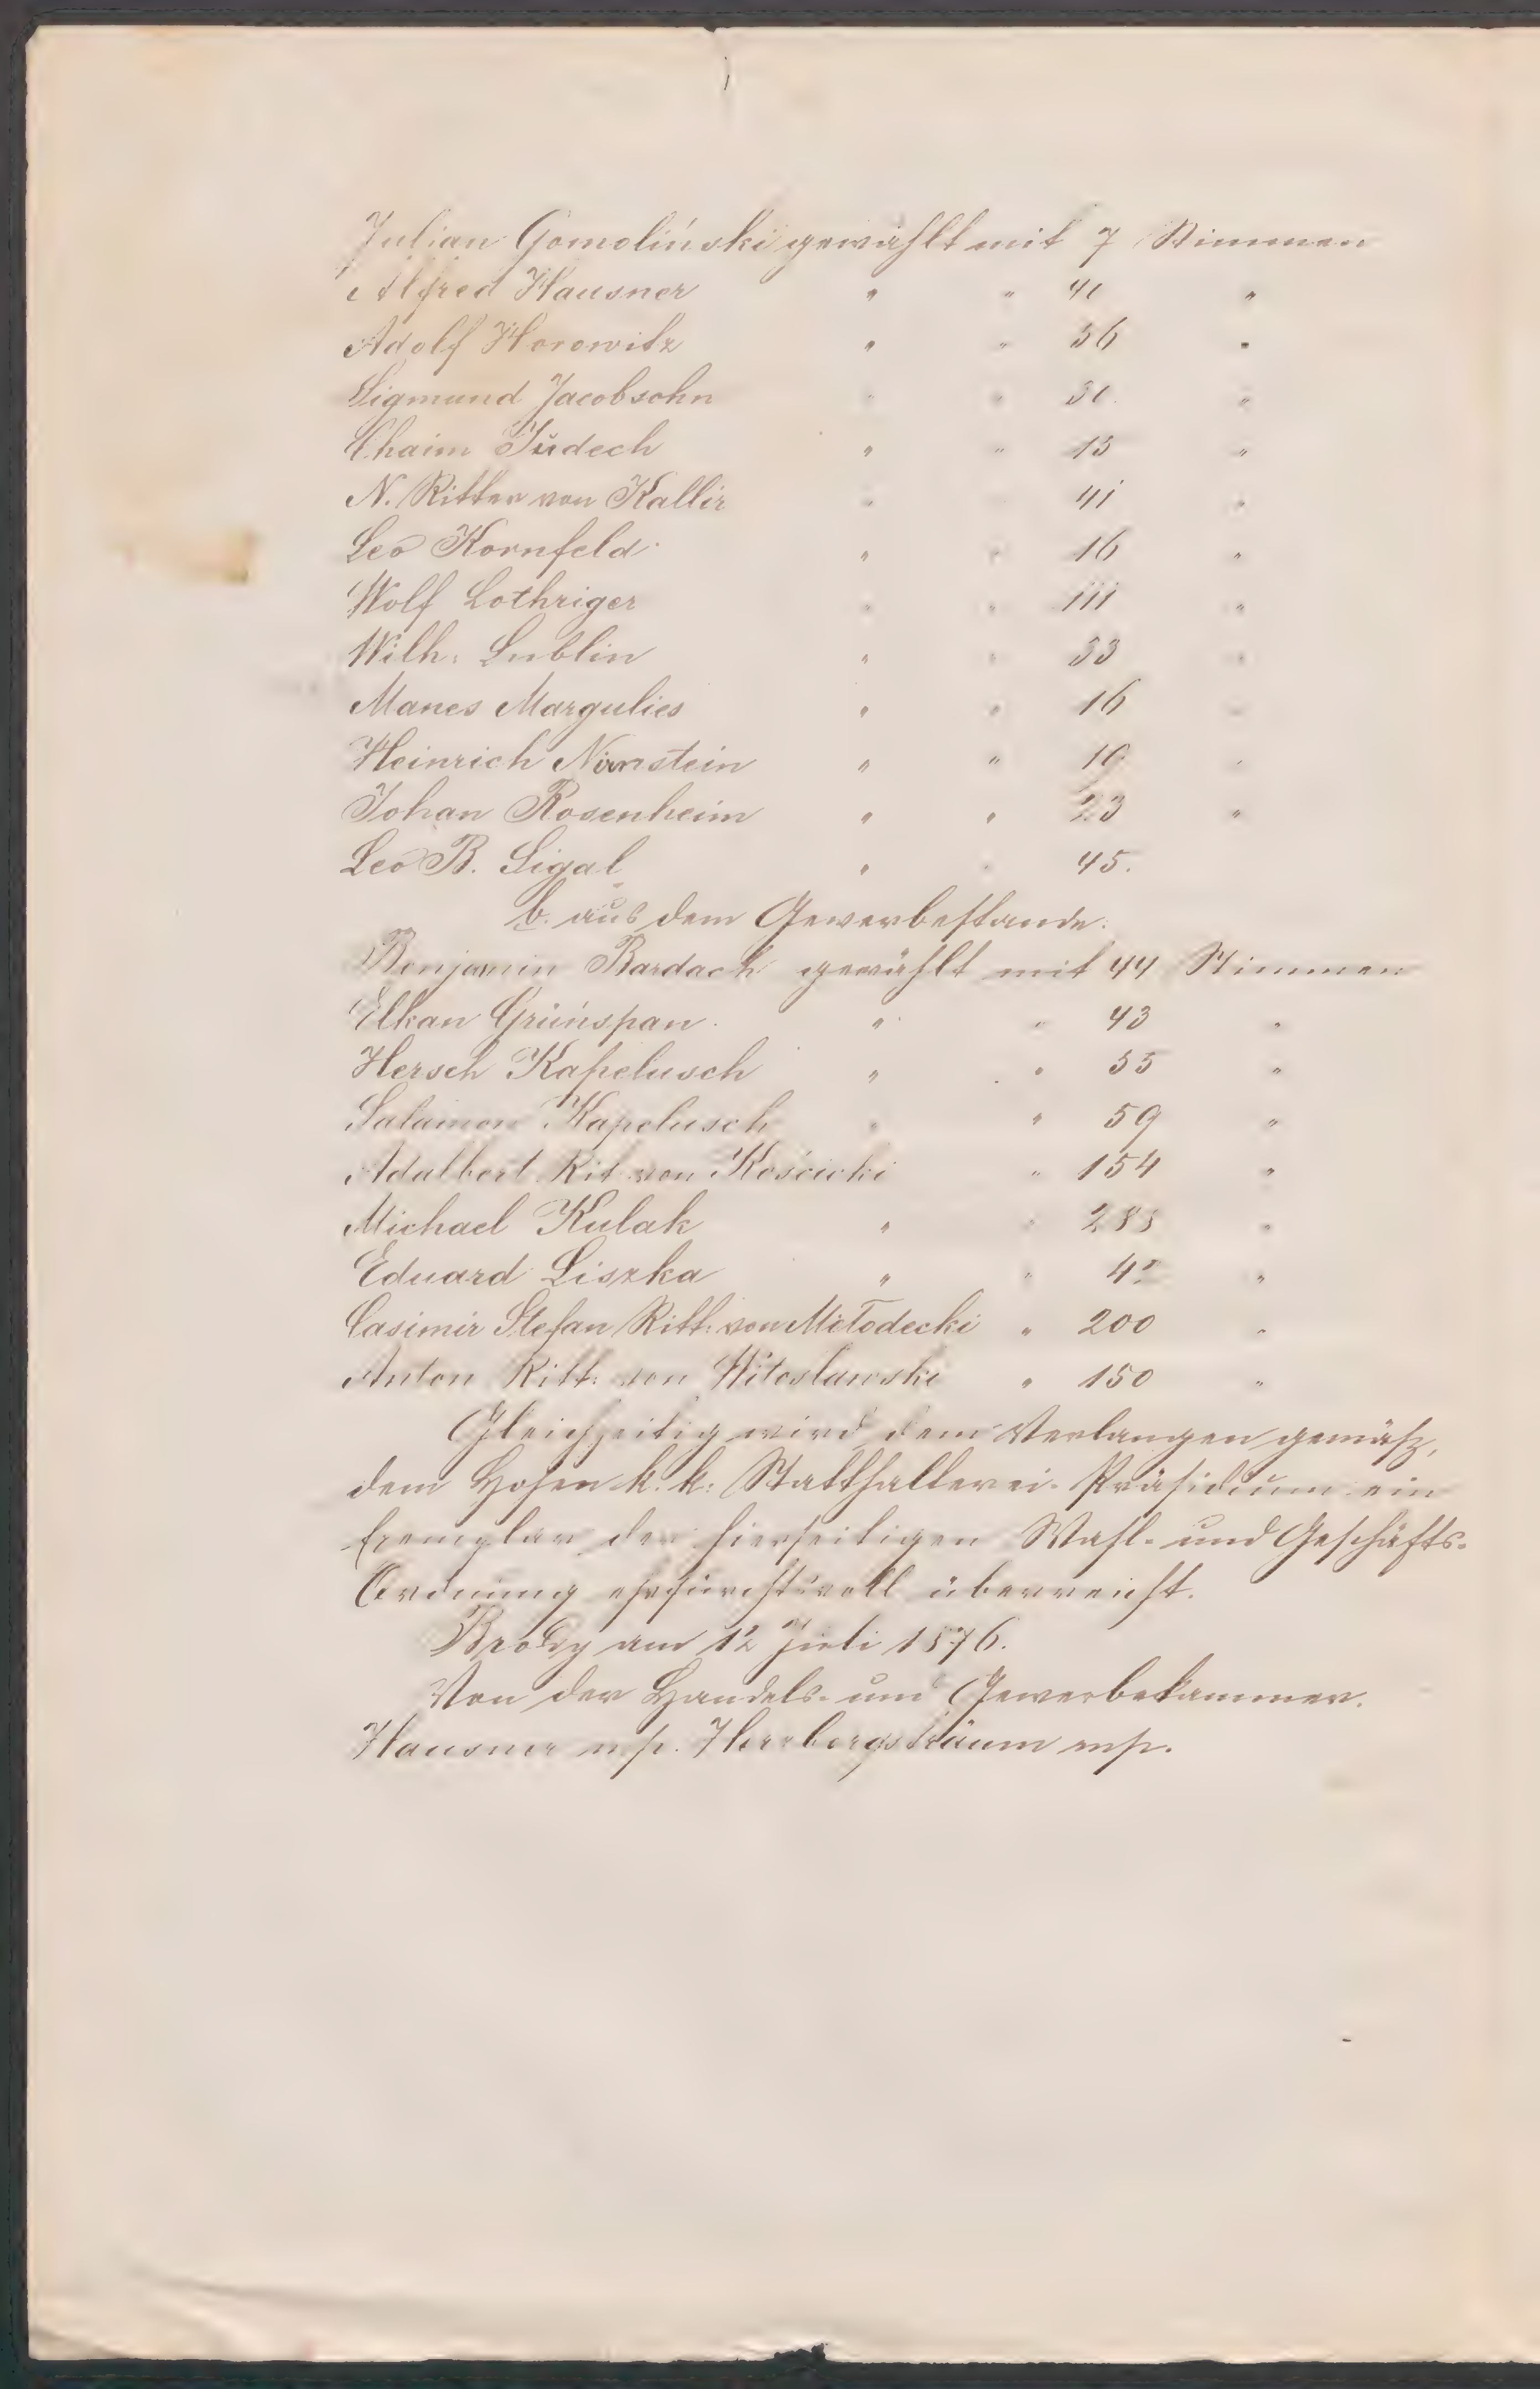 Julian Gomoliński gewählt mit 7 Stimmen
Alfred Hausner " " 41 "
Adolf Horowitz " " 36 "
Sigmund Jacobsohn " " 30 "
Chaim Judech " " 13 "
N. Ritter von Kallir " 41 "
Leo Kornfeld " " 16 "
Wolf Lothriger " " 111 "
Wilh: Lublin " " 33 "
Manes Margulies " " 16 "
Heinrich Nirnstein " " "
Johan Rosenheim " " 23 "
Leo B. Sigal " " 45.
b. aus dem Gewerbestande:
Benjamin Bardach gewählt mit 44 Stimmen
Elkan Grünspan " " 43 "
Hersch Kapelusch " " 55 "
Salamon Kapelusch " " 59 "
Adalbert Rit. von Kościcki " 154 "
Michael Kulak " " 288 "
Eduard Liszka " " "
Casimir Stefan Ritt. von Mitodecki " 200 "
Anton Ritt: von Witoslawski " 150 "
Gleichzeitig wird dem Verlangen gemäß,
dem Hohen k. k. Statthalterei-Präsidium ein
Exemplar der hierseitigen Wahl- und Geschäfts-
Ordnung ehrfurchtsvoll überreicht.
Brody am 12 Juli 1876.
Von der Handels- und Gewerbekammer.
Hausner mp. Herzbergsträum mp.